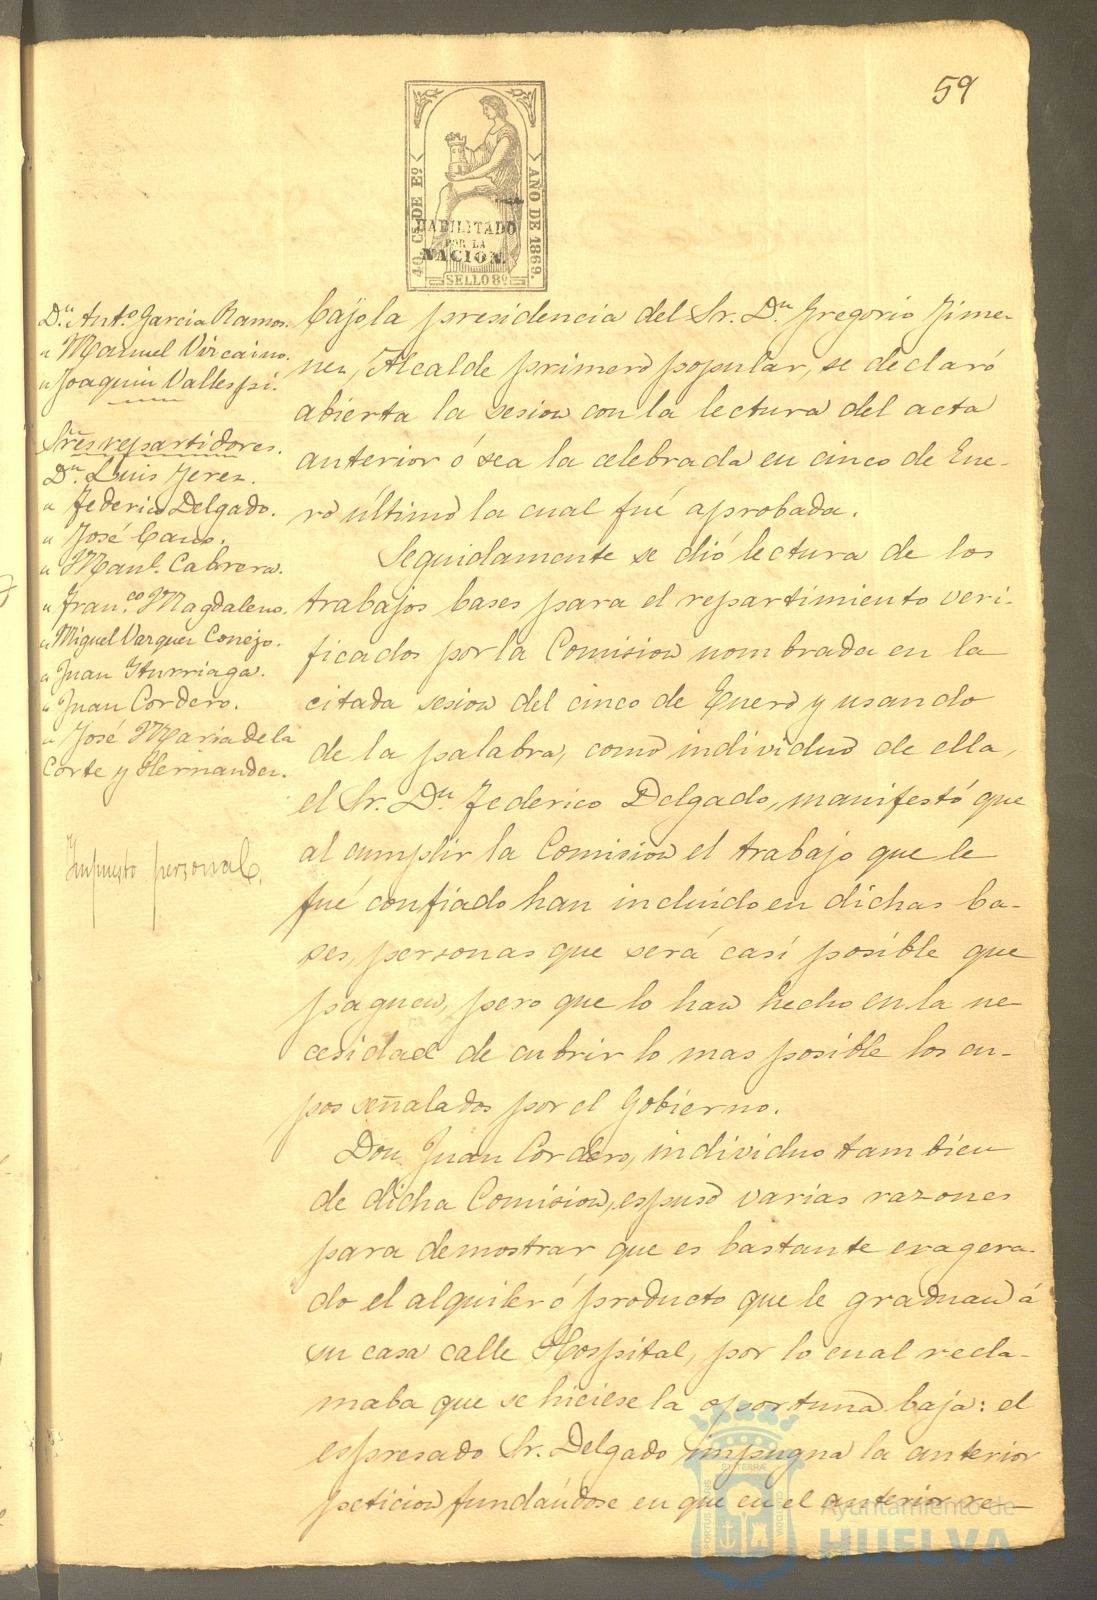 59
40 CS. DE Eº
AÑO DE 1869.
HABILITADO
POR LA
NACION.
SELLO 8º
Dn. Antº Garcia Ramos.
" Manuel Vizcaino.
" Joaquin Vallespi.
Sres repartidores.
Dn. Luis Jerez.
" Federico Delgado.
" José Cano.
" Manl. Cabrera.
" Franco Magdaleno.
" Miguel Vazquez Conejo.
" Juan Yturriaga.
" Juan Cordero.
" José Maria de la
Corte y Hernandez.
Impuesto personal.
bajo la presidencia del Sr. Dn. Gregorio Jime-
nez, Alcalde primero popular, se declaró
abierta la sesion con la lectura del acta
anterior ó sea la celebrada en cinco de Ene-
ro último la cual fué aprobada.
Seguidamente se dió lectura de los
trabajos bases para el repartimiento veri-
ficados por la Comision nombrada en la
citada sesion del cinco de Enero y usando
de la palabra, como individuo de ella,
el Sr. Dn. Federico Delgado, manifestó que
al cumplir la Comision el trabajo que le
fué confiado han incluido en dichas ba-
ses, personas que será casi posible que
paguen, pero que lo han hecho en la ne-
cesidad de cubrir lo mas posible los cu-
pos señalados por el Gobierno.
Don Juan Cordero, individuo tambien
de dicha Comision, espuso varias razones
para demostrar que es bastante exagera-
do el alquiler ó producto que le graduan á
su casa calle Hospital, por lo cual recla-
maba que se hiciese la oportuna baja: el
espresado Sr. Delgado impugna la anterior
peticion fundándose en que en el anterior re-
Ayuntamiento de
HUELVA